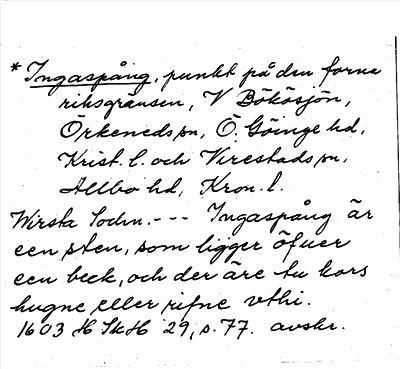 * Ingaspång, punkt på den forna
riksgränsen, V Bökösjön,
Örkeneds sn, Ö. Göinge hd,
Krist. l. och Virestads sn,
Allbo hd, Kron. l.
Wirsta Sockn. --- Ingaspång är
een sten, som ligger öfuer
een beck, och der äre tu kors
hugne eller rifne vthi.
1603 H Sk H 29, s. 77. avskr.